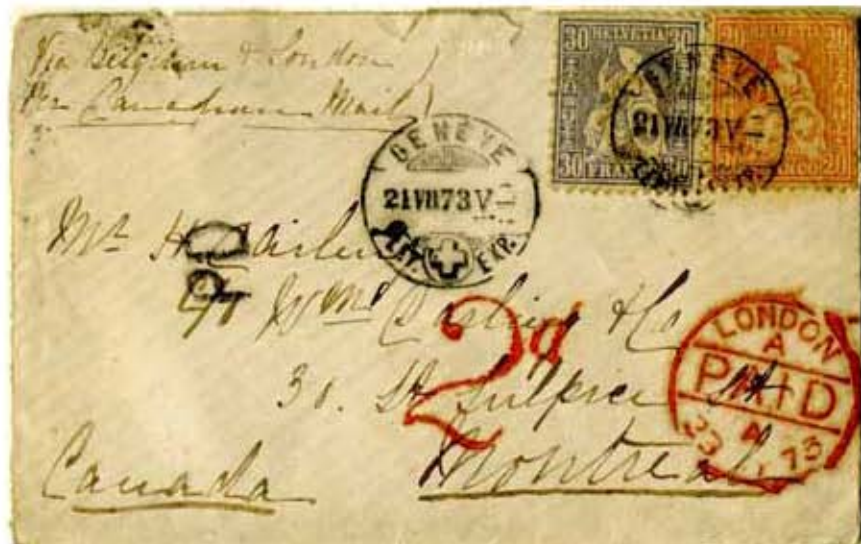 Via Belgium & London
Per Canadian Mail
30 HELVETIA 30
30 FRANCO
20 HELVETIA 20
FRANCO 20
GENÈVE
21 VII 73 V
LET. EXP.
GENÈVE
21 VII 73 V
Mr H
Wm Darling & Co
2d
30. St Sulpice St
Montreal
Canada
LONDON
A
PAID
23 73